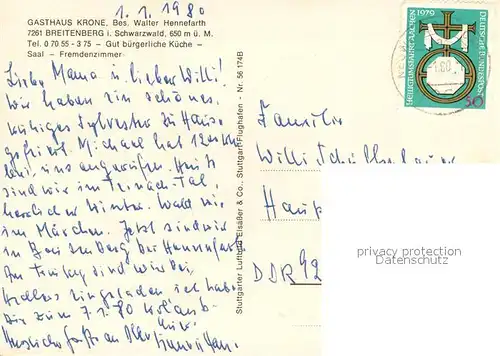 1.1.1980
GASTHAUS KRONE, Bes. Walter Hennefarth
7261 BREITENBERG i. Schwarzwald, 650 m ü. M.
Tel. 0 70 55 - 3 75 – Gut bürgerliche Küche –
Saal – Fremdenzimmer
Liebe Mama u. lieber Willi!
Wir haben ein schönes,
ruhiges Sylvester zu Hause
gefeiert. Michael hat
uns angerufen. Heute
sind wir im Teinach-Tal,
herrlicher Winter. Wald wie
im Märchen. Jetzt sind wir
in Breitenberg bei Hennefarth
Am Freitag sind wir bei
eingeladen ich habe
bis zum 7.1.80
Herzliche Grüße
Stuttgarter Luftbild Elsäßer & Co. Stuttgart-Flughafen - Nr. 56 174B
HEILIGTUMSFAHRT AACHEN 1979
DEUTSCHE BUNDESPOST
50
Familie
Willi
DDR 92
privacy protection
Datenschutz